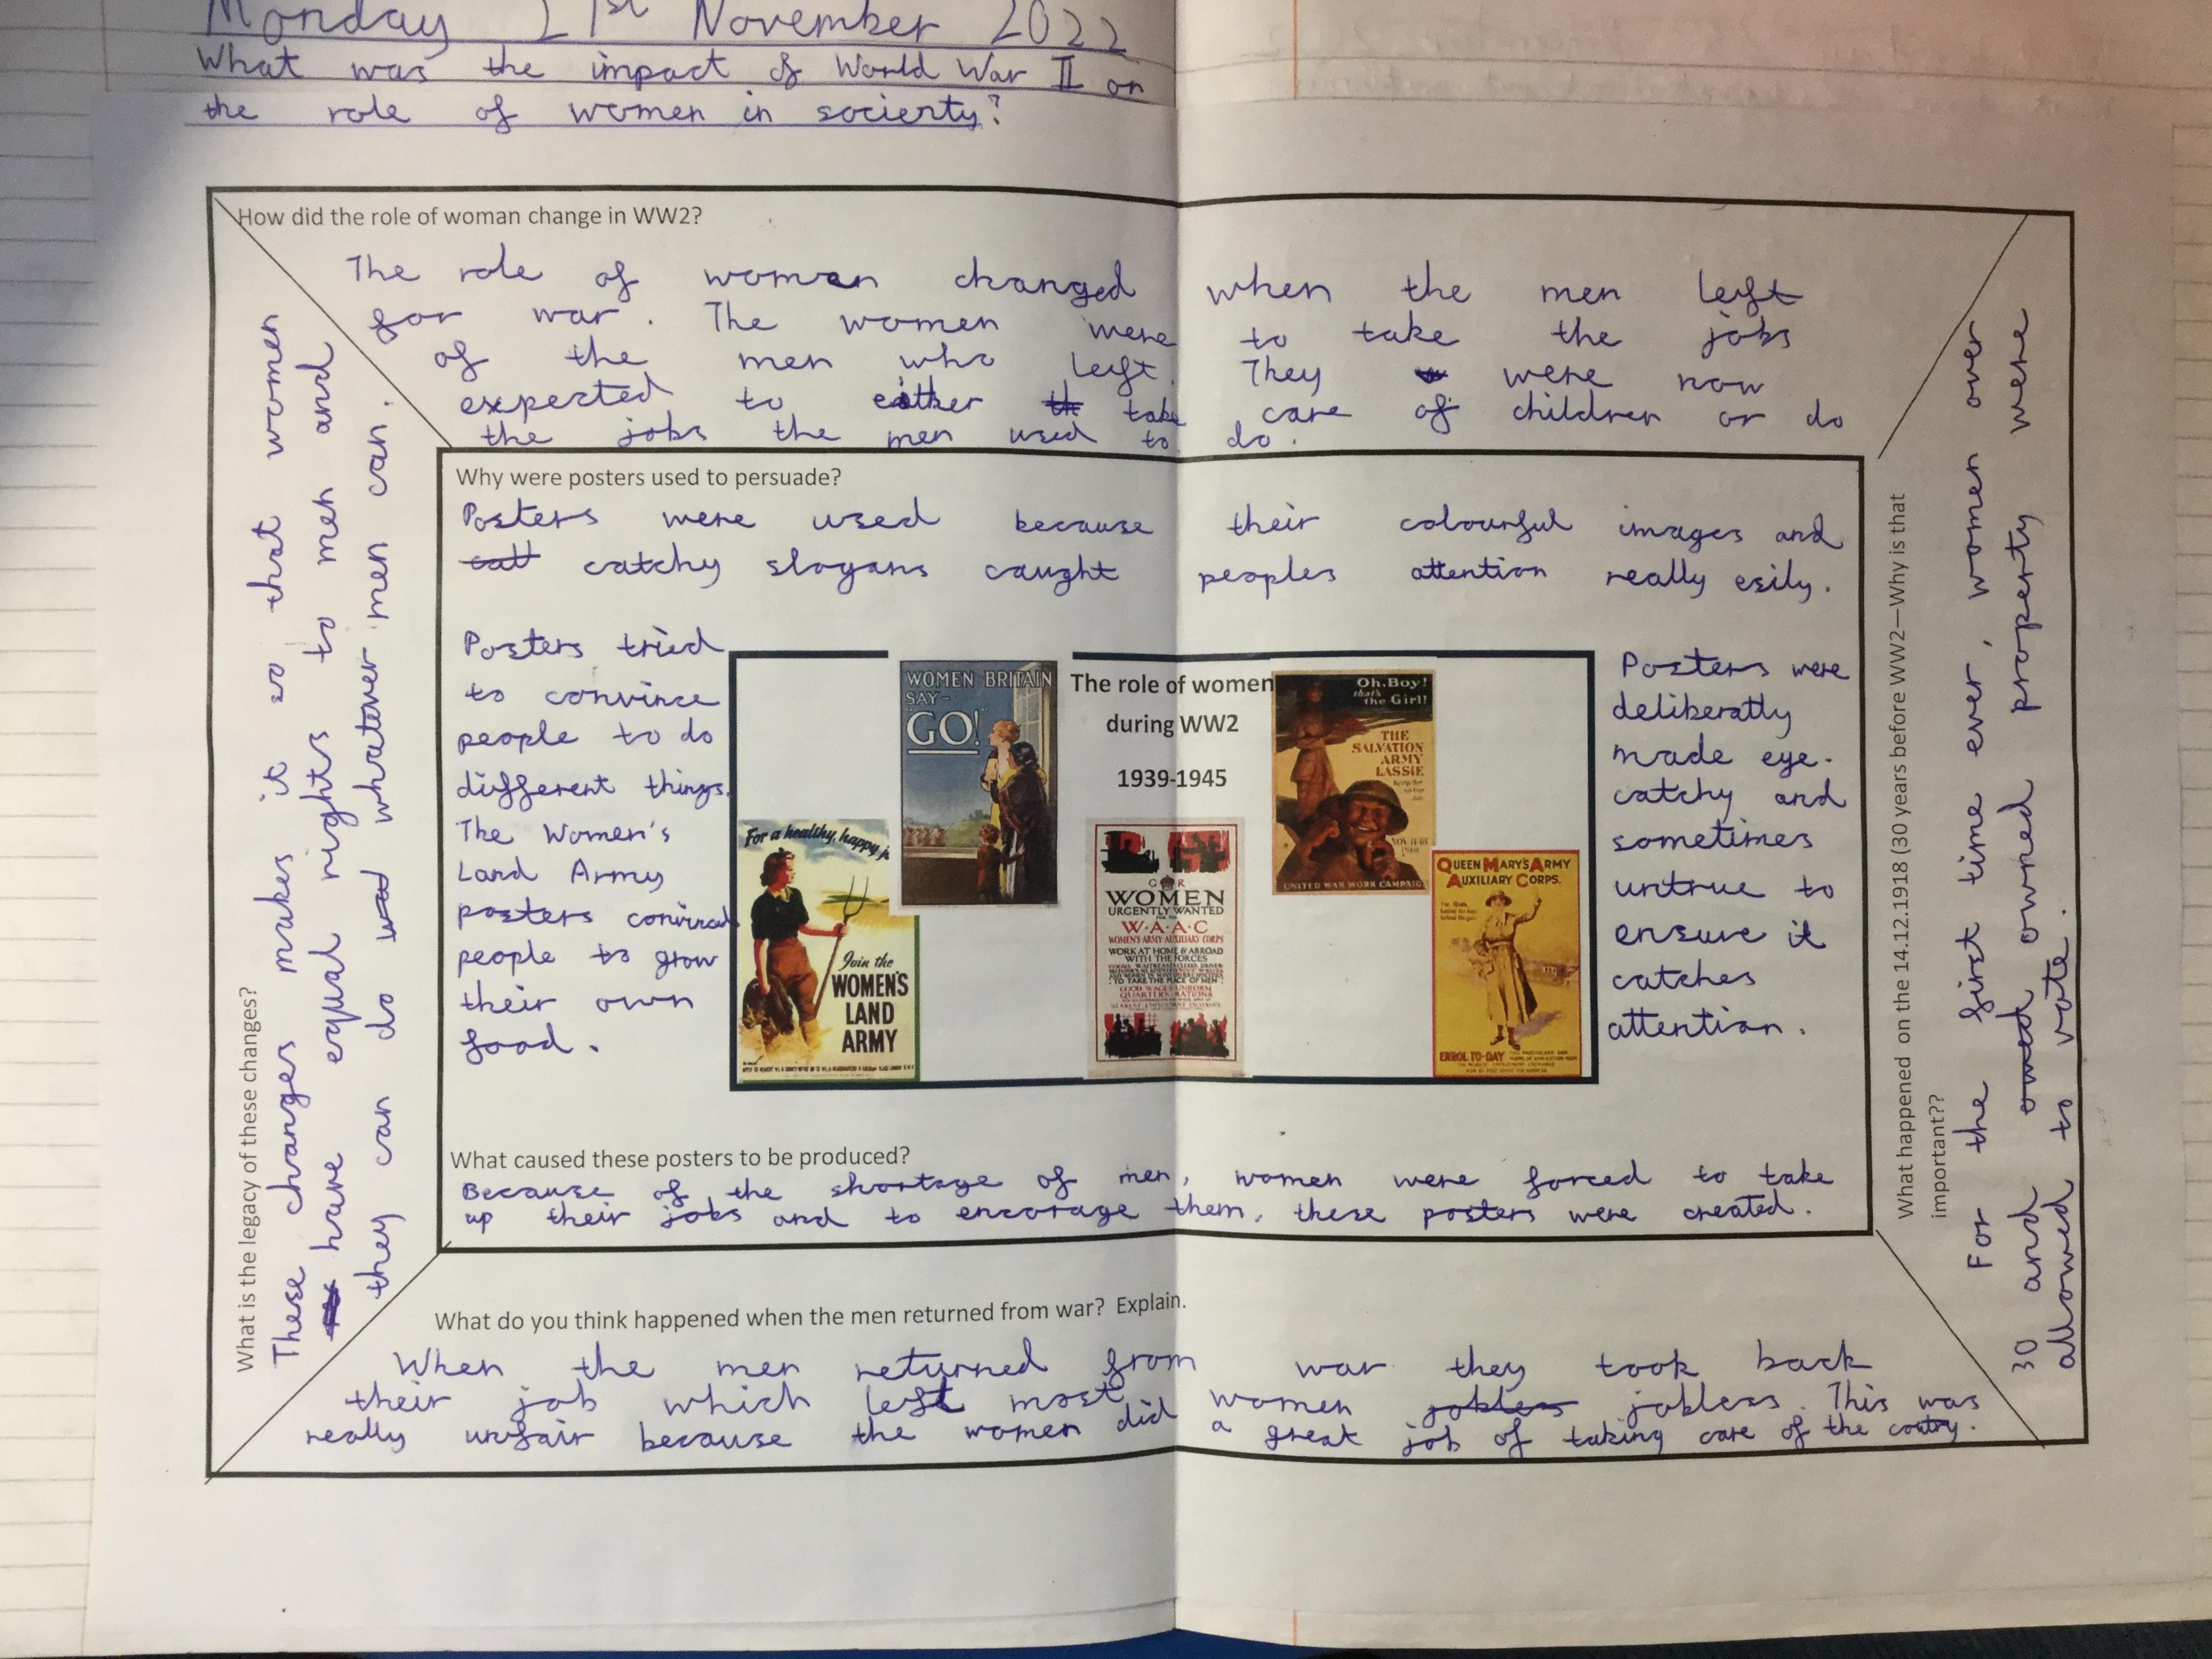 Monday 21st November 2022
What was the impact of World War II on
the role of women in socierty?
How did the role of woman change in WW2?
The role of women changed when the men left
for war. The women were to take the jobs
of the men who left. They were now
expected to either take care of children or do
the jobs the men used to do.
What is the legacy of these changes?
These changes makes it so that women
have equal rights to men and
they can do whatever men can.
Why were posters used to persuade?
Posters were used because their colourful images and
catchy slogans caught peoples attention really esily.
Posters tried
to convince
people to do
different things.
The Women's
Land Army
posters convinced
people to grow
their own
food.
WOMEN BRITAIN
SAY-
"GO!"
The role of women
during WW2
1939-1945
Oh, Boy!
that's
the Girl!
THE
SALVATION
ARMY
LASSIE
NOV 11-18
1918
UNITED WAR WORK CAMPAIG
For a healthy, happy j
Join the
WOMEN'S
LAND
ARMY
G R
WOMEN
URGENTLY WANTED
FOR THE
W·A·A·C
WOMEN'S ARMY AUXILIARY CORPS
WORK AT HOME & ABROAD
WITH THE FORCES
TO TAKE THE PLACE OF MEN
GOOD WAGES·UNIFORM
QUARTERS·RATIONS
QUEEN MARY'S ARMY
AUXILIARY CORPS.
ENROL TO-DAY
Posters were
deliberatly
made eye-
catchy and
sometimes
untrue to
ensure it
catches
attention.
What caused these posters to be produced?
Because of the shortage of men, women were forced to take
up their jobs and to encorage them, these posters were created.
What do you think happened when the men returned from war? Explain.
When the men returned from war they took back
their job which left most women jobless jobless. This was
really unfair because the women did a great job of taking care of the coutry.
What happened on the 14.12.1918 (30 years before WW2—Why is that
important??
For the first time ever, women over
30 and owned owned property were
allowed to vote.